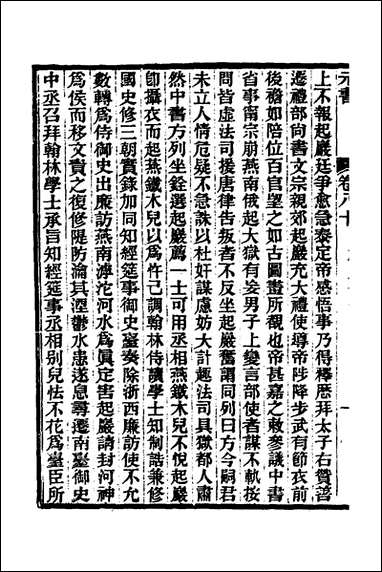 元書
卷八十
一
上不報起巖廷爭愈急泰定帝感悟事乃得釋厯拜太子右贊善
遷禮部尙書文宗親郊起巖充大禮使導帝陟降步武有節衣前
後襜如陪位百官望之如古圖畫所覩也帝甚嘉之敕參議中書
省事甯宗崩燕南俄起大獄有妄男子上變言部使者謀不軌按
問皆虛法司援唐律告叛者不反坐起巖奮謂同列曰方今嗣君
未立人情危疑不急誅以杜奸謀慮妨大計趣法司具獄都人肅
然中書方列坐銓選起巖薦一士可用丞相燕鐵木兒不悅起巖
卽攝衣而起燕鐵木兒以爲忤己調翰林侍讀學士知制誥兼修
國史修三朝實錄加同知經筵事御史臺奏除浙西廉訪使不允
數轉爲侍御史出廉訪燕南滹沱河水爲眞定害起巖請封河神
爲侯而移文責之復修隄防瀹其湮鬱水患遂息尋遷南臺御史
中丞召拜翰林學士承旨知經筵事丞相別兒怯不花爲臺臣所